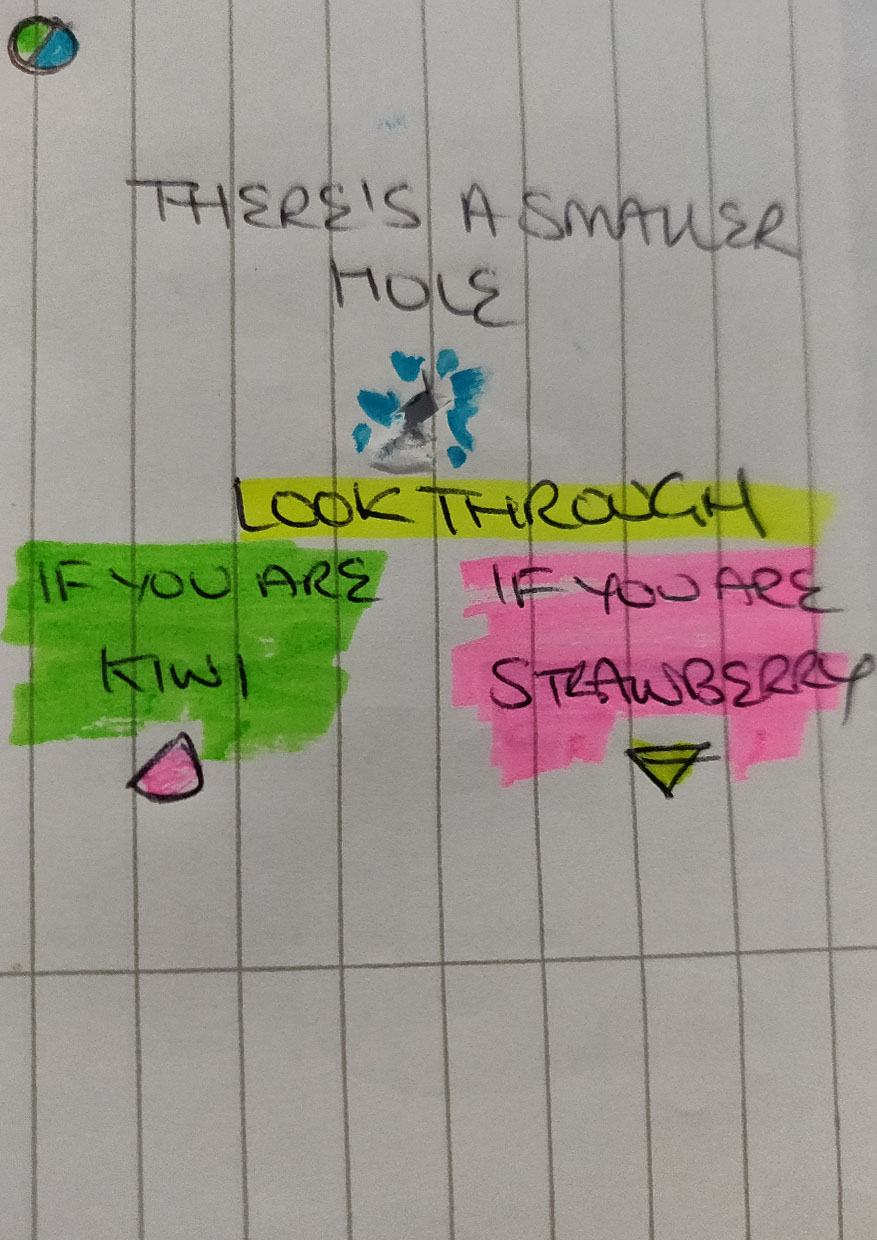 THERE'S A SMALLER
HOLE
LOOK THROUGH
IF YOU ARE
KIWI
IF YOU ARE
STRAWBERRY